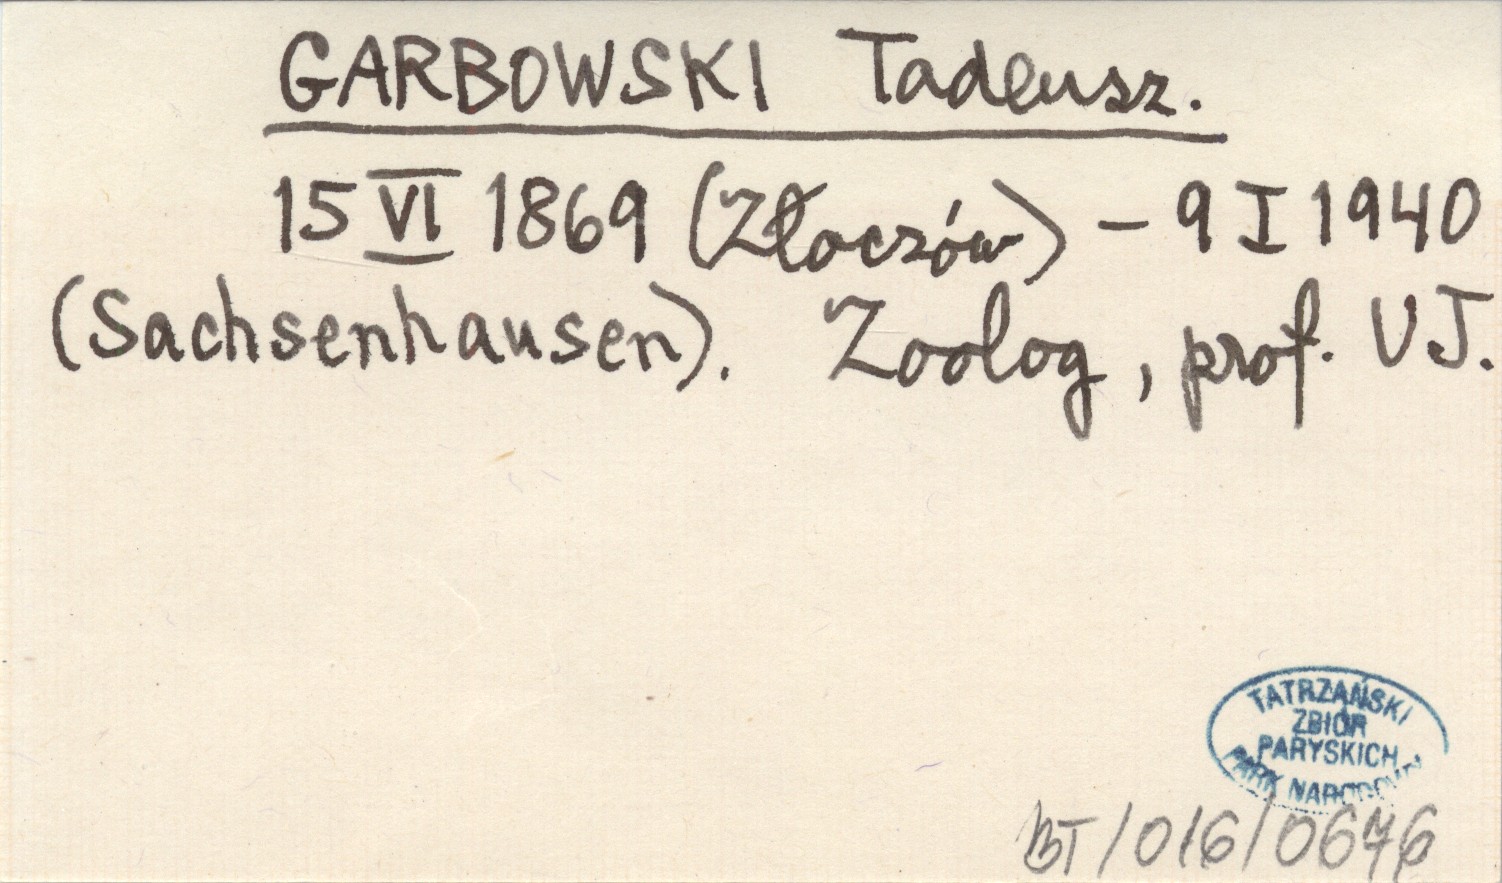 GARBOWSKI Tadeusz.
15 VI 1869 (Złoczów) – 9 I 1940
(Sachsenhausen). Zoolog, prof. UJ.
TATRZAŃSKI
ZBIÓR
PARYSKICH
PARK NARODOWY
BT/016/0676